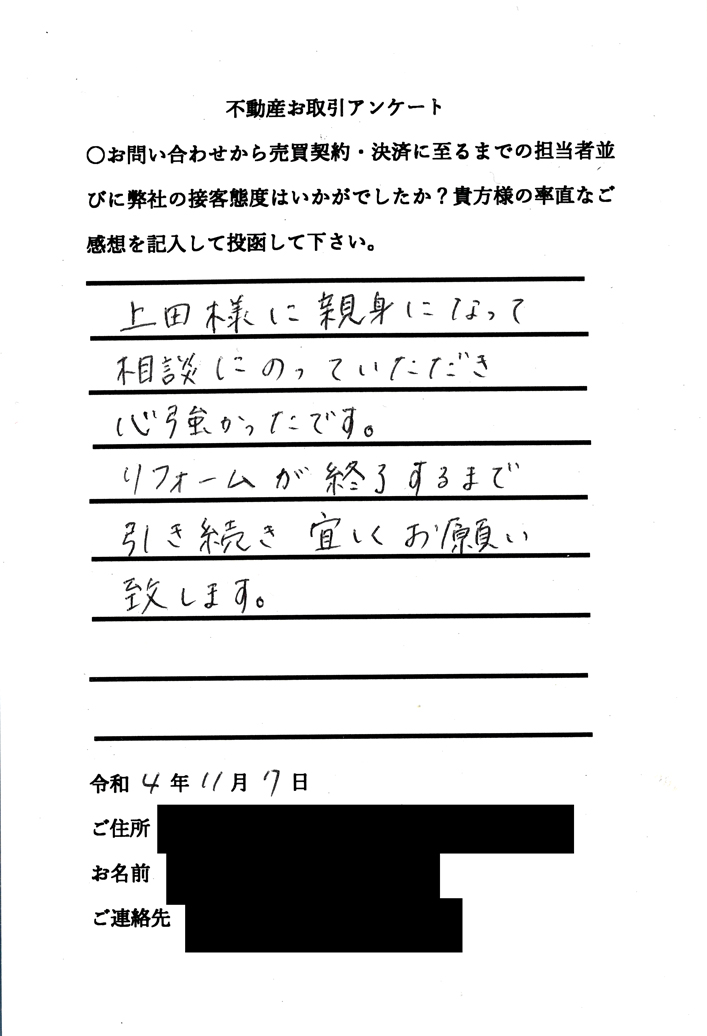 不動産お取引アンケート
〇お問い合わせから売買契約・決済に至るまでの担当者並
びに弊社の接客態度はいかがでしたか？貴方様の率直なご
感想を記入して投函して下さい。
上田様に親身になって
相談にのっていただき
心強かったです。
リフォームが終了するまで
引き続き宜しくお願い
致します。
令和4年11月7日
ご住所
お名前
ご連絡先